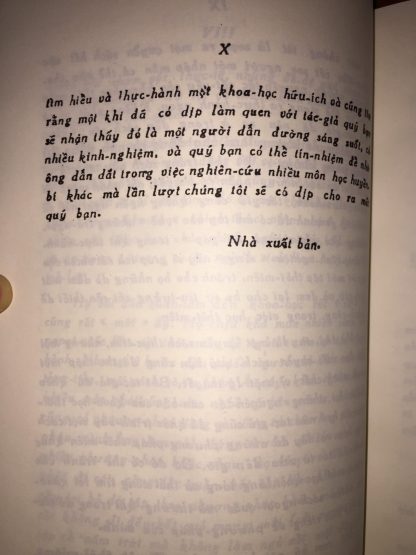 X
tìm hiểu và thực-hành một khoa-học hữu-ích và cũng
rằng một khi đã có dịp làm quen với tác-giả quý bạn
sẽ nhận thấy đó là một người dẫn đường sáng suốt, có
nhiều kinh-nghiệm, và quý bạn có thể tín-nhiệm để
ông dẫn dắt trong việc nghiên-cứu nhiều môn học huyền
bí khác mà lần lượt chúng tôi sẽ có dịp cho ra
quý bạn.
Nhà xuất bản.